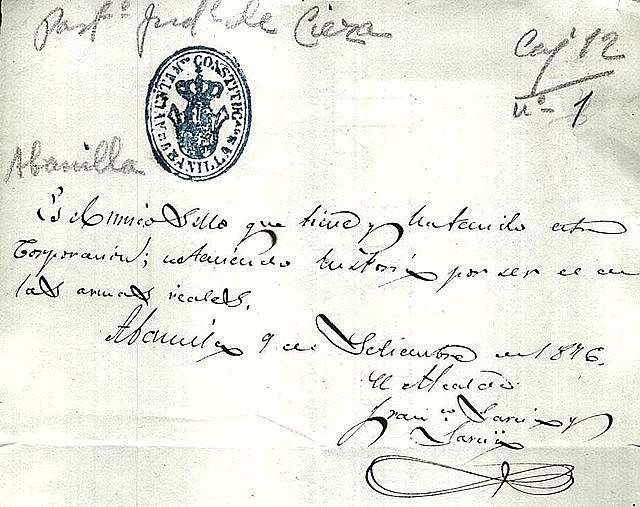 Partº Judˡ de Cieza
Caj 12
nº 1
AYUNTAMIENTO CONSTITUCˡ DE ABANILLA
Abanilla
Es el unico Sello que tiene y ha tenido esta
Corporacion; no teniendo historia por ser el de
las armas reales.
Abanilla 9 de Setiembre de 1876.
El Alcalde
Franᶜᵒ Garcia y
Garcia